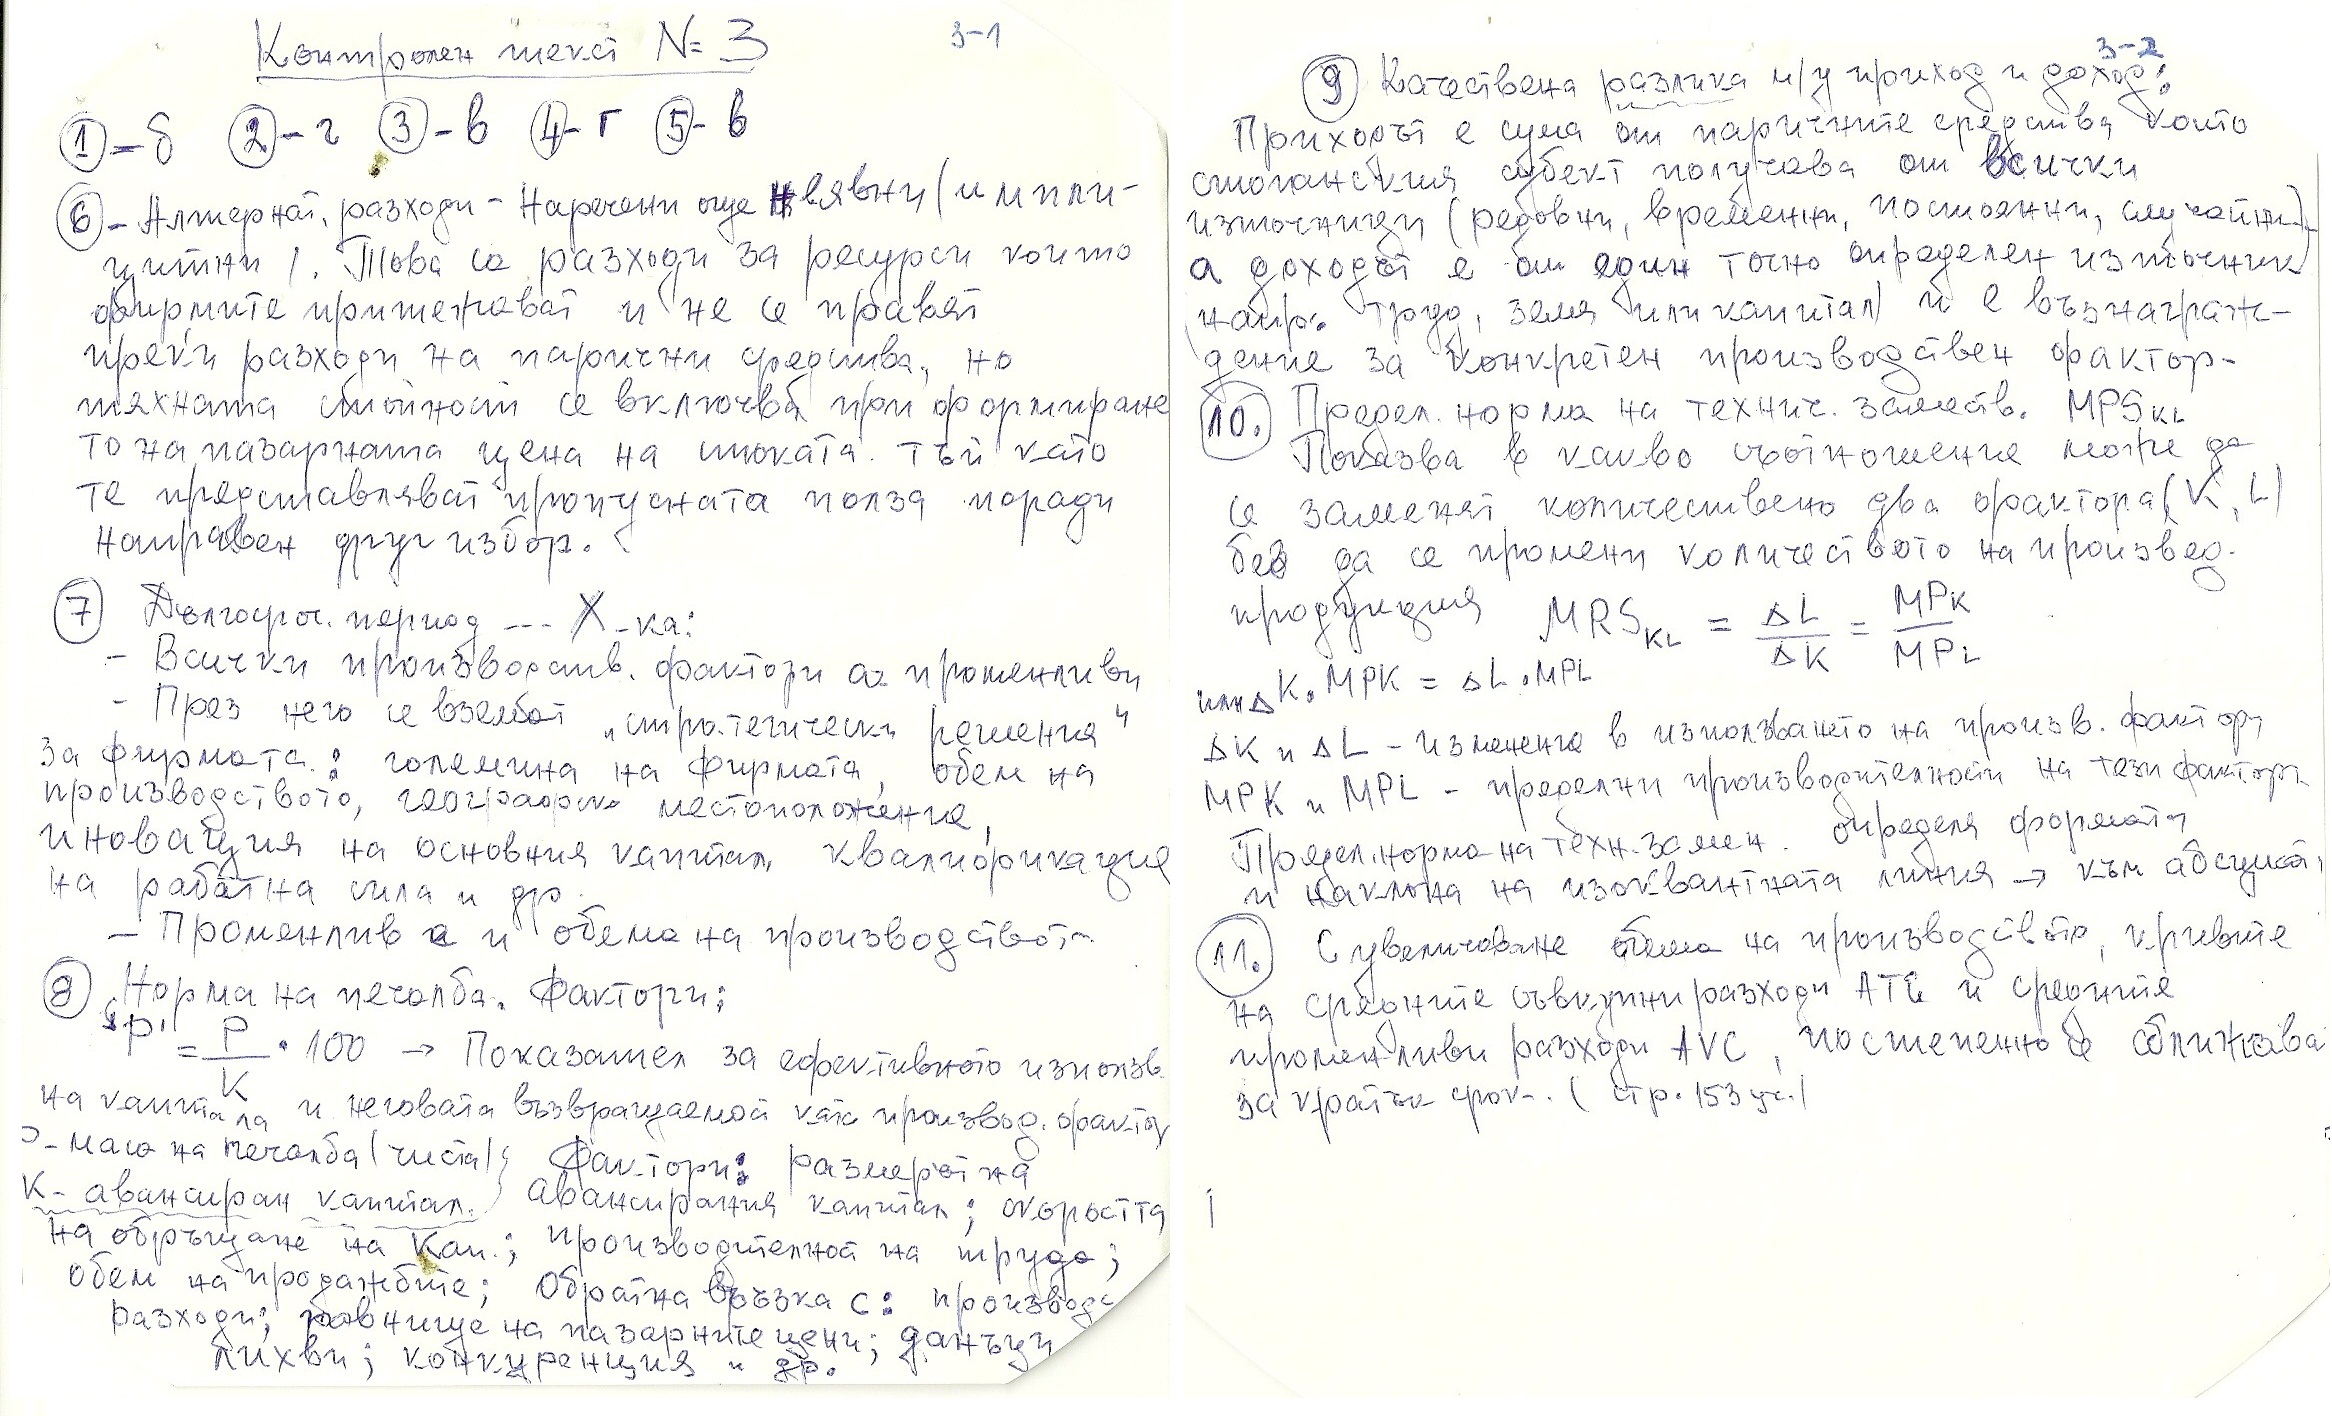 Контролен тест № 3
3-1
① - б ② - г ③ - в ④ - г ⑤ - в
⑥ - Алтернат. разходи - Наречени още неявни (импли-
цитни). Това са разходи за ресурси които
фирмите притежават и не се правят
преки разходи на парични средства, но
тяхната стойност се включва при формиране
то на пазарната цена на стоката. Тъй като
те представляват пропусната полза поради
направен друг избор.
⑦ Дългоср. период --- Х-ка:
- Всички производств. фактори са променливи
- През него се вземат „стратегически решения"
за фирмата: големина на фирмата, обем на
производството, географско местоположение,
иновация на основния капитал, квалификация
на работна сила и др.
- Променлив е и обема на производството
⑧ Норма на печалба. Фактори:
P' = P/K · 100 → Показател за ефективното използв.
на капитала и неговата възвращаемост като производ. фактор
P - маса на печалба (чиста) Фактори: размерът на
K - авансиран капитал. авансирания капитал; скоростта
на обръщане на Кап.; производителност на труда;
обем на продажбите; Обратна връзка с: производ
разходи; равнище на пазарните цени; данъци
лихви; конкуренция и др.
3-2
⑨ Качествена разлика м/у приход и доход:
Приходът е сума от паричните средства които
стопанския субект получава от всички
източници (редовни, временни, постоянни, случайни)
а доходът е от един точно определен източник
(напр. труд, земя или капитал) и е възнаграж-
дение за конкретен производствен фактор.
⑩. Предел. норма на технич. заместв. MPSKL
Показва в какво съотношение може да
се заменят количествено два фактора (K, L)
без да се промени количеството на произвед.
продукция MRSKL = ΔL/ΔK = MPK/MPL
или ΔK. MPK = ΔL. MPL
ΔK и ΔL - изменение в използването на произв. фактори
MPK и MPL - пределни производителности на тези фактори
Предел. норма на техн. замен. определя формата
и наклона на изоквантната линия → към абсцисат.
⑪. С увеличаване обема на производството, кривите
на средните съвкупни разходи ATC и средните
променливи разходи AVC, постепенно се сближават
за кратък срок. (стр. 153 уч.)